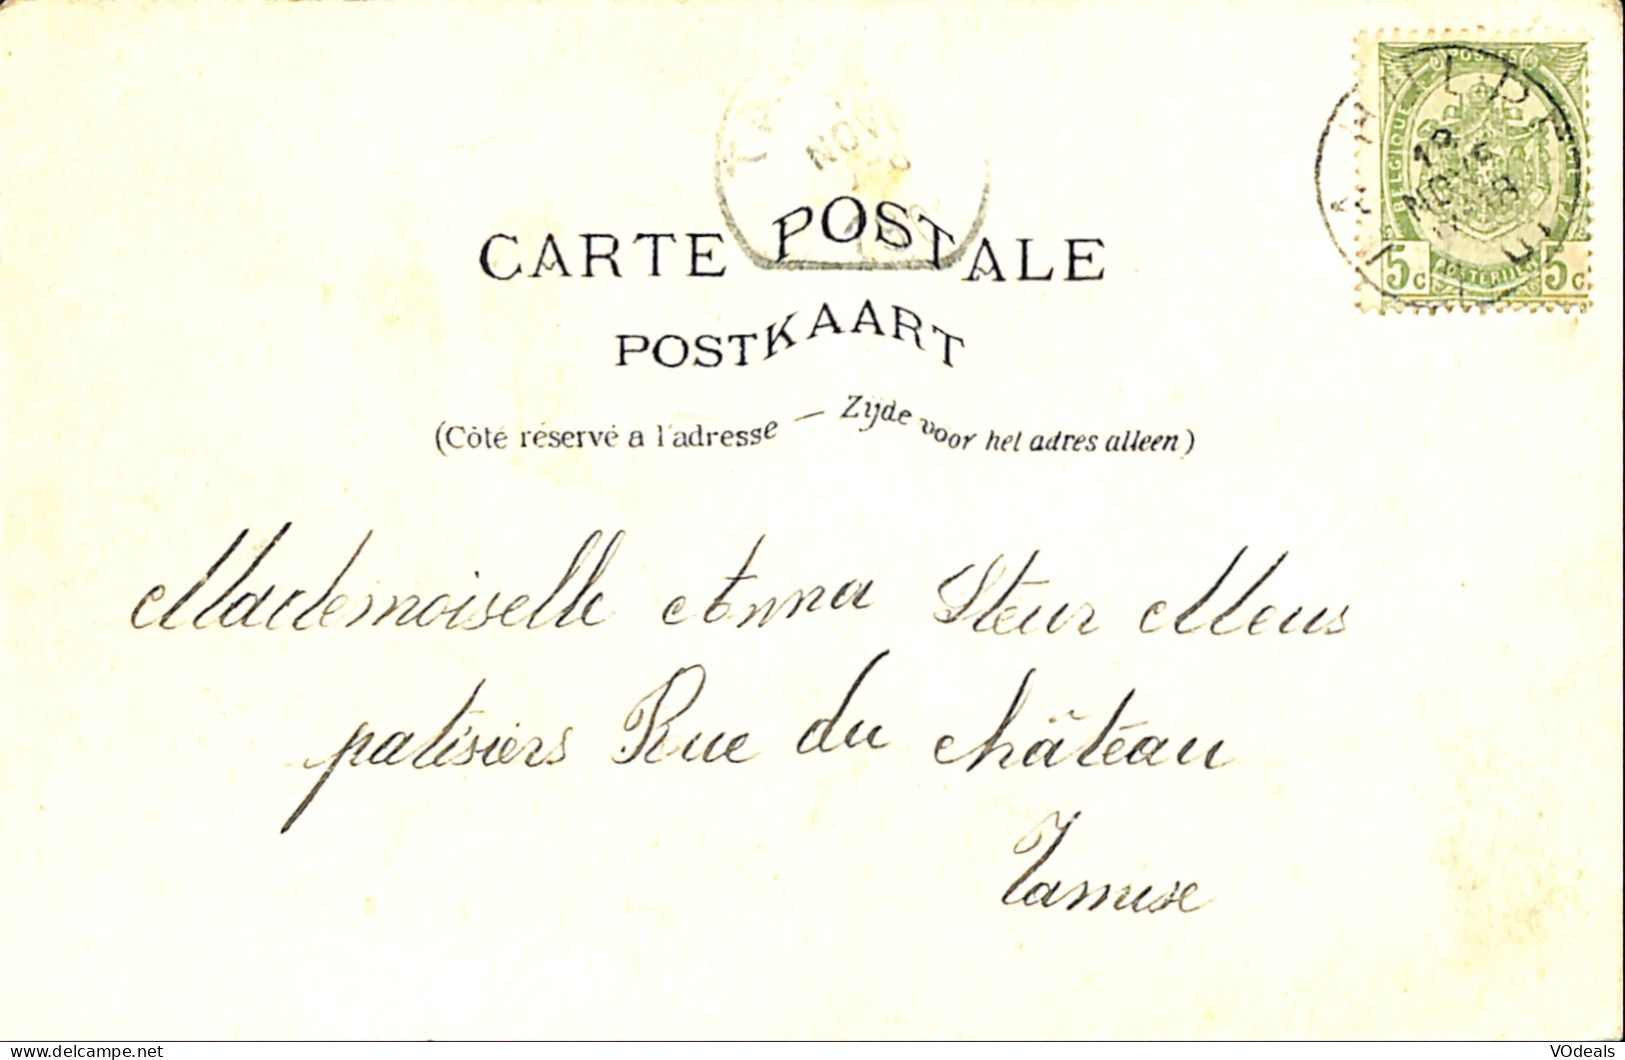 POSTES
BELGIQUE
NOV
5c POSTERIJEN 5c
CARTE POSTALE
POSTKAART
(Côté réservé a l'adresse — Zijde voor het adres alleen)
Mademoiselle Anna Steur Meus
patisiers Rue du château
Tamise
delcampe.net
VOdeals